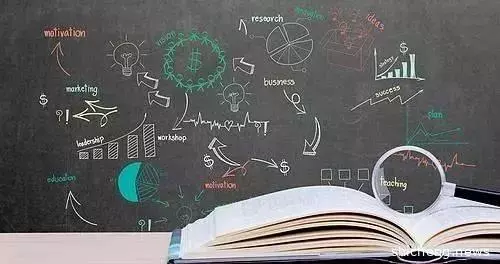 motivation
research
analysis
ideas
vision
marketing
$
business
strategy
$
$
?!
SUCCESS
plan
leadership
workshop
?!
$
$
motivation
education
teaching
?!
sbicheng.news